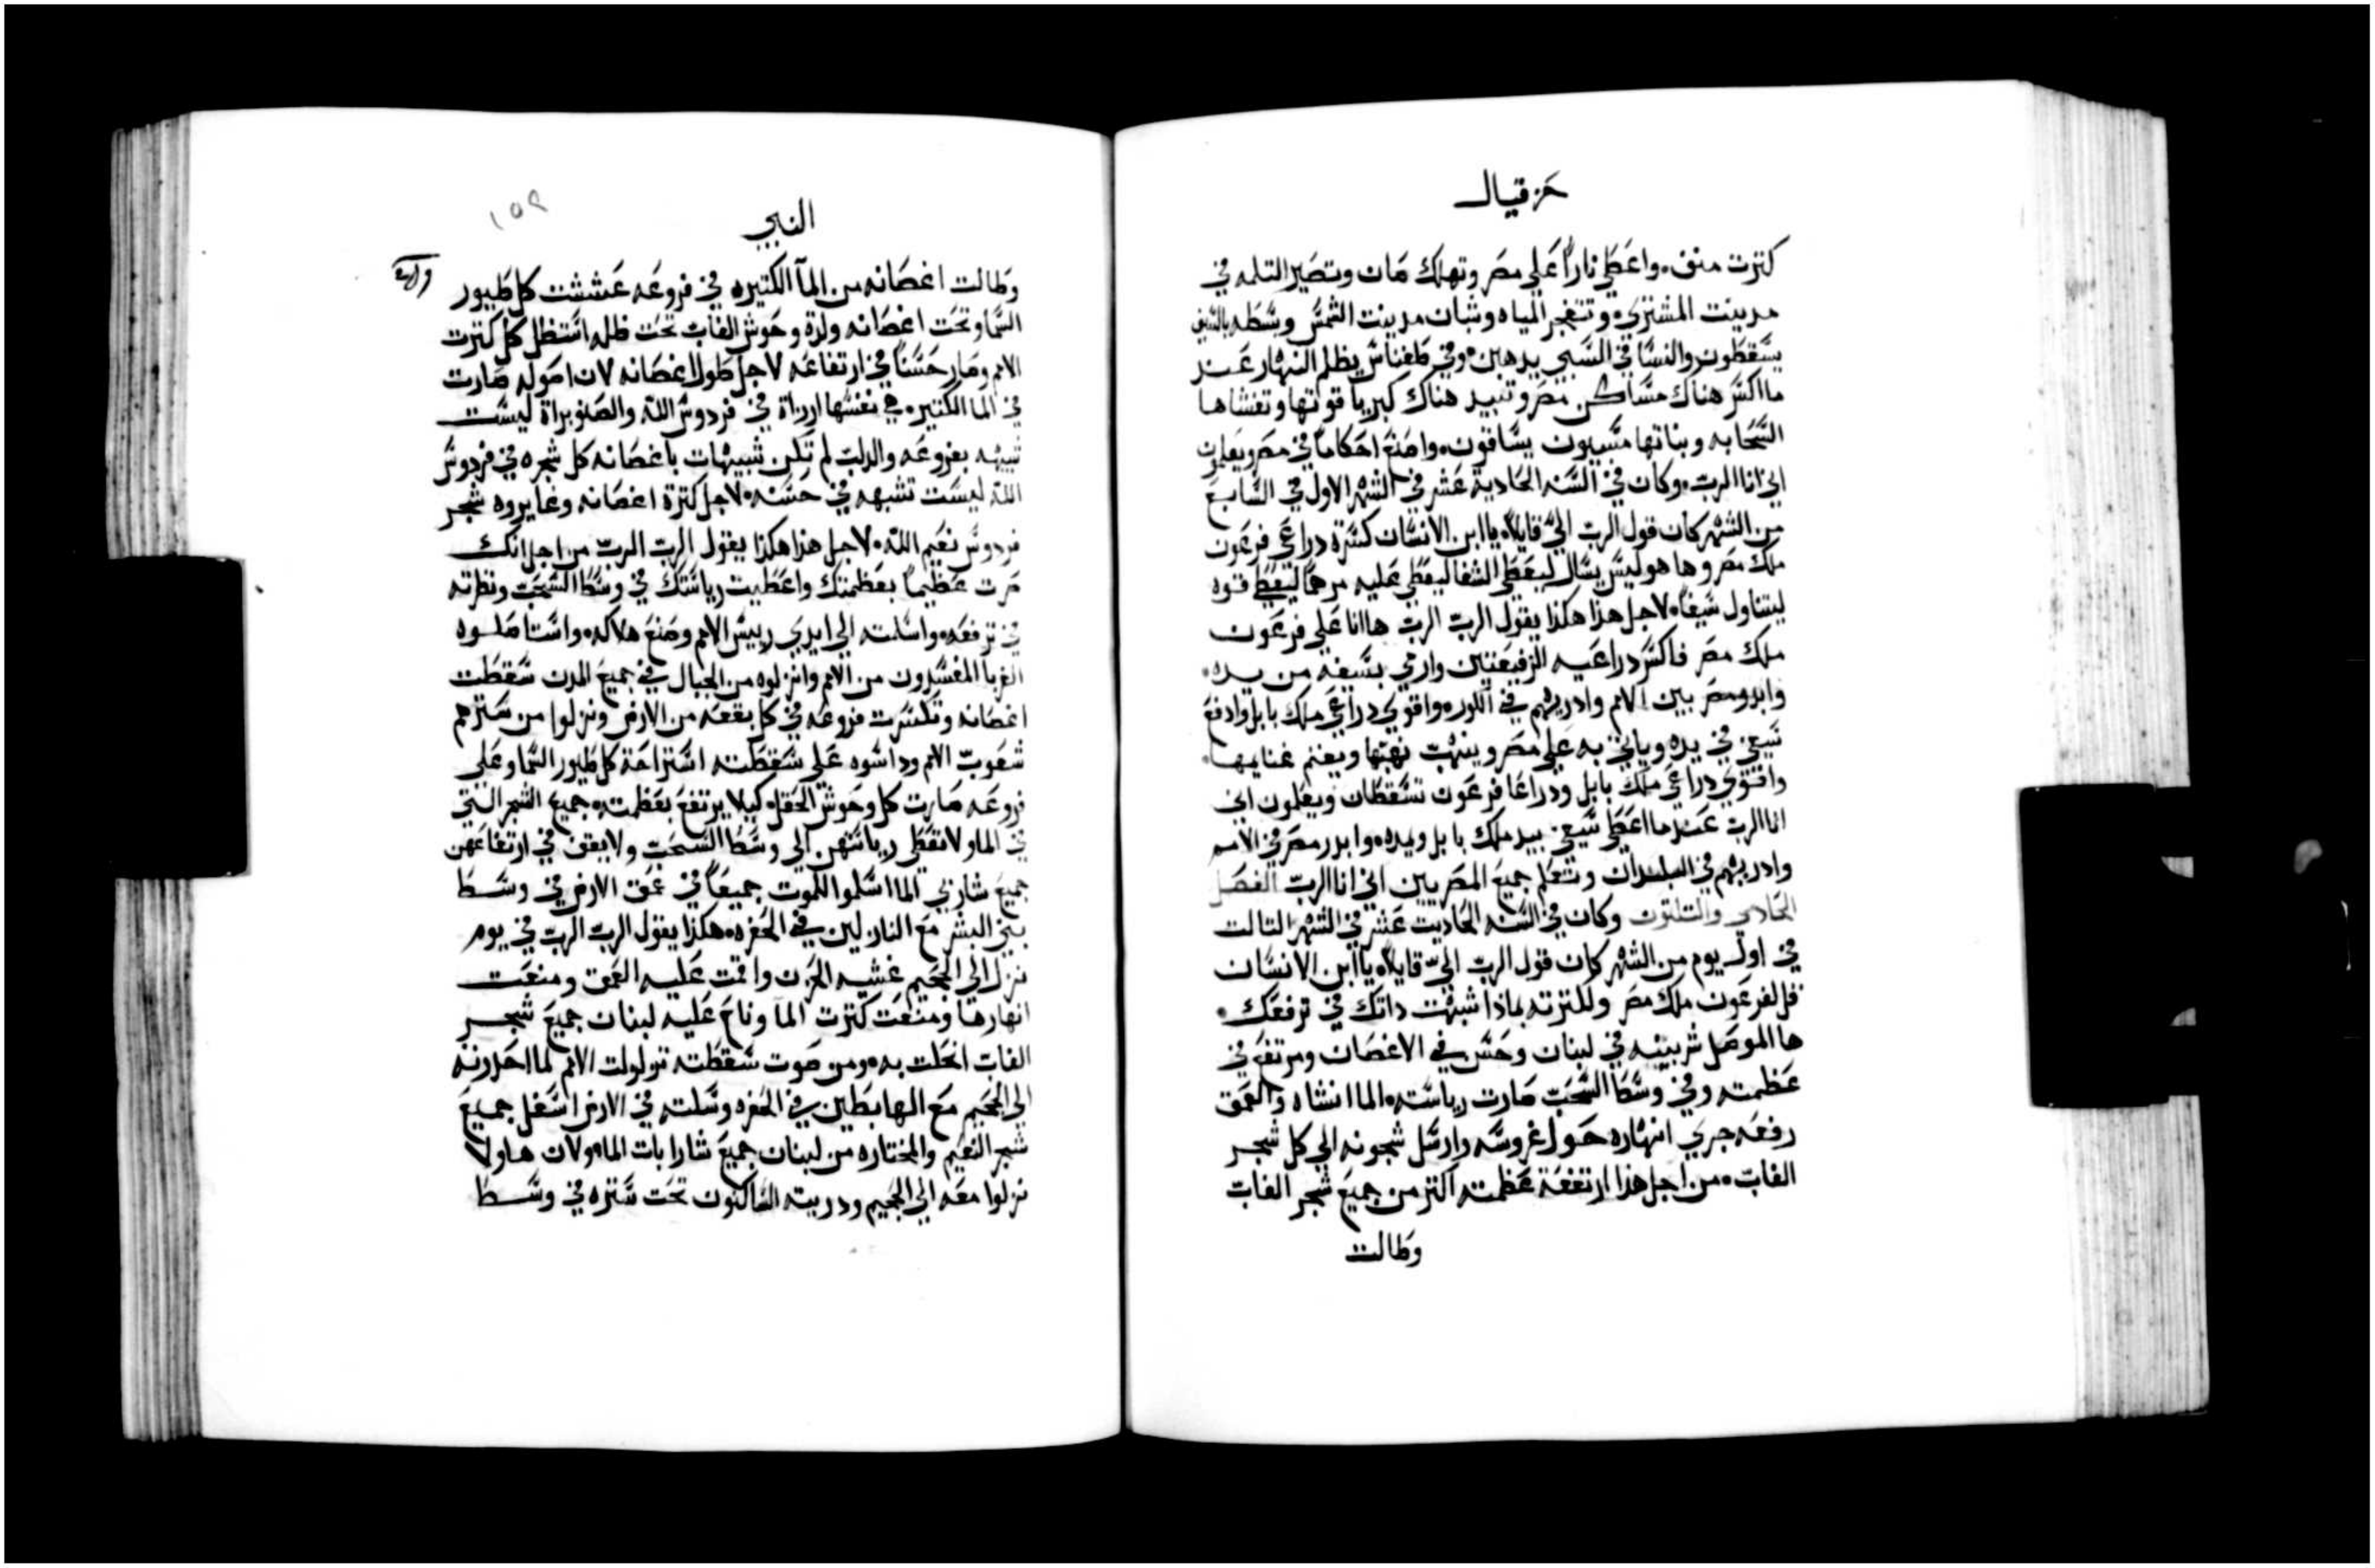 حزقيال
كترت منف. واعطي ناراً علي مصر وتهلك صان وتصير التلمه في
مدينت المشتري. وتنفجر المياه وشبان مدينت الشمس وبسطه بالسيف
يسقطون والنسا في السبي يدهبن. وفي طفناس يظلم النهار عند
ما اكسر هناك مساكن مصر وتبيد هناك كبريا قوتها وتغشاها
السحابه وبناتها مسبيون يساقون. واصنع احكاماً في مصر ويعلمون
اني انا الرب. وكان في السنه الحادية عشر في الشهر الاول في السابع
من الشهر كان قول الرب اليّ قايلاً. يا ابن الانسان كسرة دراعي فرعون
ملك مصر وها هو ليس يسال ليعطي الشفا ليعطي عليه مرهماً ليعطي قوه
ليتناول سيفاً. لاجل هذا هكذا يقول الرب الرب ها انا علي فرعون
ملك مصر فاكسر دراعيه الرفيعتين وارمي بسيفه من يده.
وابدد مصر بين الامم وادريهم في الكوره واقوي دراعي ملك بابل وادفع
سيفي في يده وياتي به علي مصر وينهب نهبتها ويغنم غنايمها.
واقوي دراعي ملك بابل ودراعا فرعون تسقطان ويعلمون اني
انا الرب عندما اعطي سيفي بيد ملك بابل ويده. وابدد مصر في الامم
وادريهم في البلدان وتعلم جميع المصريين اني انا الرب الفصل
الحادي والتلتون وكان في السنه الحاديت عشر في الشهر التالت
في اول يوم من الشهر كان قول الرب اليّ قايلاً. يا ابن الانسان
قل لفرعون ملك مصر ولكترته بماذا شبهت داتك في ترفعك.
ها الموصل شربينه في لبنان وحسن في الاغصان ومرتفع في
عظمته وفي وسط السحب صارت رياسته. الما انشاه والعمق
رفعه جري انهاره حول غروسه وارسل شجونه الي كل شجر
الغاب. من اجل هذا ارتفعة عظمته اكتر من جميع شجر الغاب
وطالت
النبي
١٥٩
وطالت اغصانه من المآ الكتيره في فروعه عششت كل طيور
السما وتحت اغصانه ولدة وحوش الغاب تحت ظله استظل كل كترت
الامم وصار حسناً في ارتفاعه لاجل طول اغصانه لان اصوله صارت
في الما الكتيره. في نفسها ارزاة في فردوس الله والصنوبراة ليست
شبيهه بفروعه والدلب لم تكن شبيهات باغصانه كل شجره في فردوس
الله ليست تشبهه في حسنه. لاجل كترة اغصانه وغايروه شجر
فردوس نعيم الله. لاجل هذا هكذا يقول الرب الرب من اجل انك
صرت عظيماً بعظمتك واعطيت رياستك في وسط السحب ونظرته
في ترفعه. واسلمته الي ايدي رييس الامم وصنع هلاكه. واستاصلوه
الغربا المفسدون من الامم وانزلوه من الجبال في جميع المدن سقطت
اغصانه وتكسرت فروعه في كل بقعه من الارض ونزلوا من سترهم
شعوب الامم وداسوه علي سقطته استراحة كل طيور السما وعلي
فروعه صارت كل وحوش الحقل. كيلا يرتفع بعظمته. جميع الشجر التي
في الما ولا تعطي رياستهن الي وسط السحب ولا يقف في ارتفاعهن
جميع شاربي الما اسلموا للموت جميعاً في عمق الارض في وسط
بني البشر مع النازلين في الحفره. هكذا يقول الرب الرب في يوم
نزل الي الجحيم غشيه الحزن واقمت عليه العمق ومنعت
انهارها ومنعت كترت المآ وناح عليه لبنان جميع شجر
الغاب انحلت به. ومن صوت سقطته تولولت الامم لما احدرته
الي الجحيم مع الهابطين في الحفره وسلته في الارض اسفل جميع
شجر النعيم والمختاره من لبنان جميع شارابات الما. ولان هاولا
نزلوا معه الي الجحيم ودريته الساكنون تحت ستره في وسط